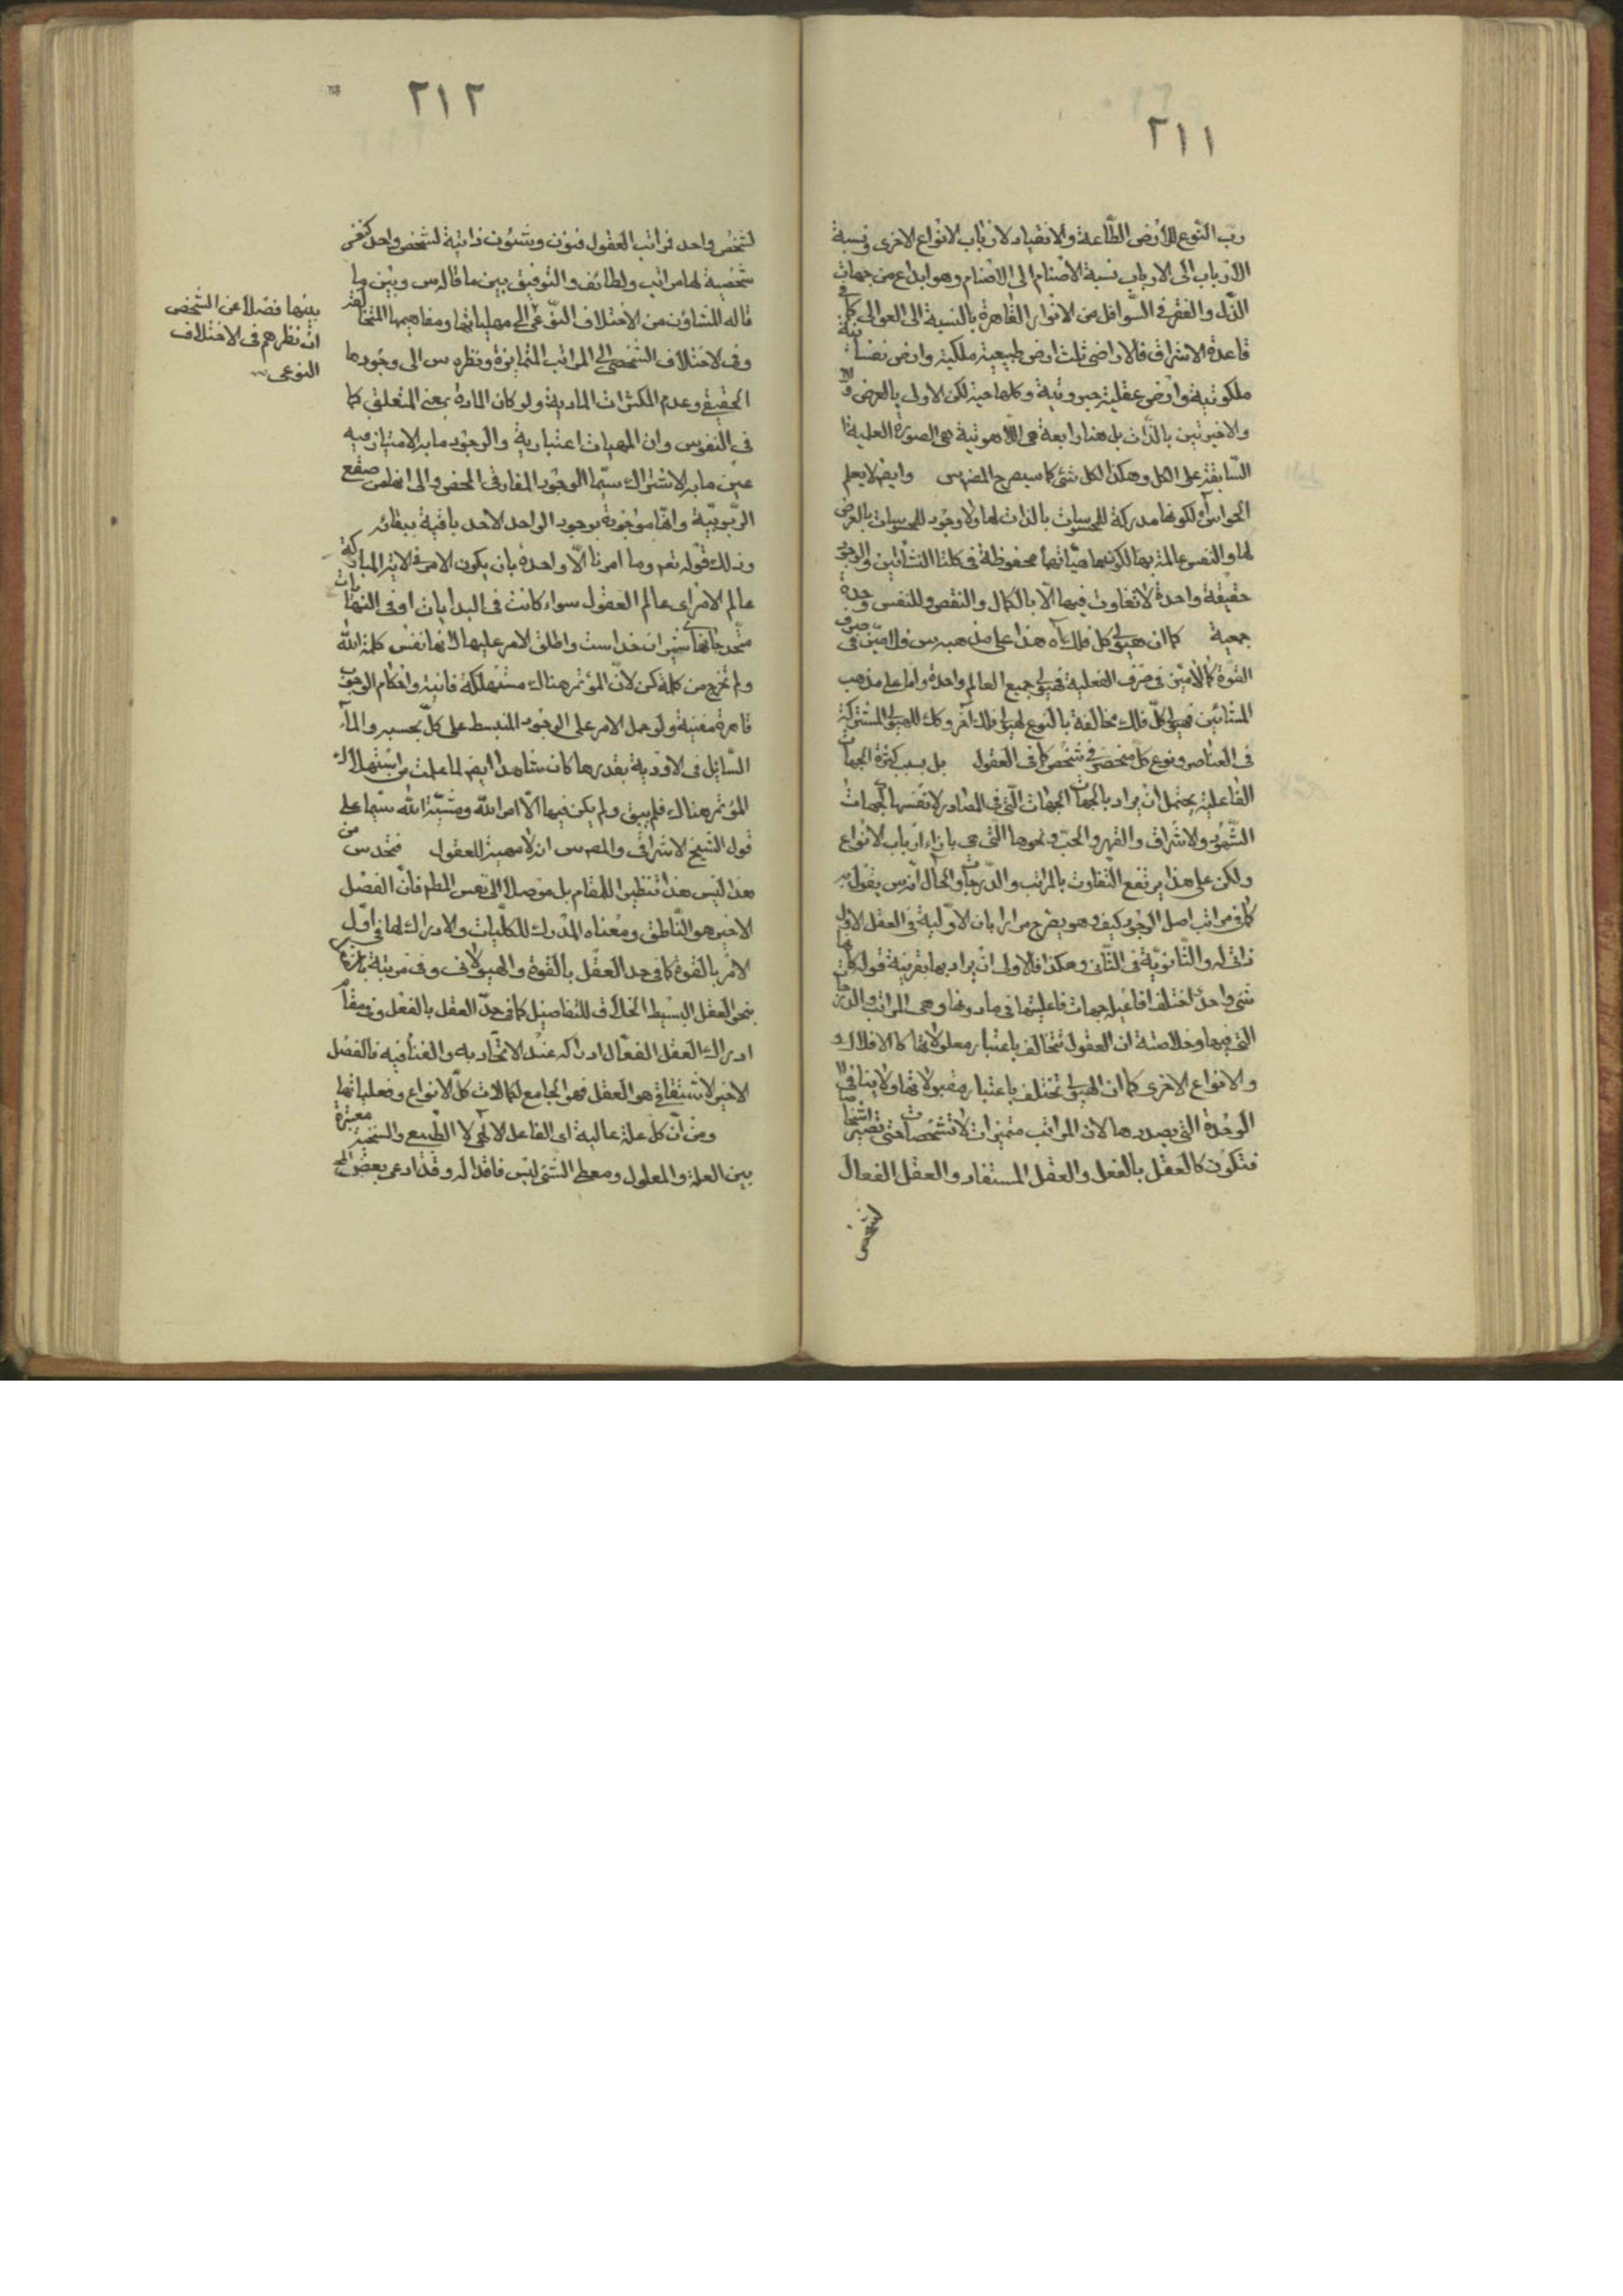 ٢١١
ربّ النوع للأرض الطّاعة والانقياد لارباب الانواع الاخرى ونسبة
الارباب الى الارباب نسبة الاصنام الى الاصنام وهو ابداع من جهات
الذّل والفقر فى السّوافل من الانوار القاهرة بالنسبة الى العوالى كما فى
قاعدة الاشراق فالاراضى ثلث ارض طبيعية ملكية وارض نفسانية
ملكوتية وارض عقلية جبروتية وكلها حية لكن الاولى بالعرض
والاخيرتين بالذّات بل هنا رابعة هى اللّاهوتية هى الصورة العلمية
السّابقة على الكل وهكذا لكل شئ كما سيصرح المص س وايض لا يعلم
الحواس آه لكونها مدركة للمحسوسات بالذات لها ولا وجود للمحسوسات بالعرض
لها والنفس عالمة بها لكونها هيّاتها محفوظة فى كلتا النشأتين والوجود
حقيقة واحدة لا تفاوت فيها الّا بالكمال والنقص وللنفس وحدة
جمعية كما ان هيولى كل فلك آه هذا على مذهبه س فى
القوّة كالامتين فى صرف الفعلية فهيولى جميع العالم واحدة واما على مذهب
المشائين فهيولى كلّ فلك مخالفة بالنوع لهيولى فلك آخر وكك للهيولى المشتركة
فى العناصر ونوع كل منحصر فى شخص كما فى العقول بل بسبب كثرة الجهات
الفاعلية يحتمل ان يراد بالجهات الجهات الّتى فى الصادر لانفسها كجهات
الشّهود والاشراق والقهر والحبّ ونحوها التى هى بازاء ارباب الانواع
ولكن على هذا يرتفع التّفاوت بالمراتب والدّرجات والحال انه س يقول به
كما فى مراتب اصل الوجود كيف وهو يصرح مرارا بان الاوّلية فى العقل الاول
ذاتى له والثّانويّة فى الثّانى وهكذا فالاولى ان يراد بها بقرينة قوله كان
شئ واحد اختلف افاعيله جهات فاعليتها فى ما دونها وهى المراتب والدرجات
التى فيها وخلاصته ان العقول تتخالف باعتبار معلولاتها كالافلاك
والانواع الاخرى كما ان الهيولى تختلف باعتبار مقبولاتها ولا ينافى
الوحدة التى بصددها لان المراتب متميزات لا تشخصات حتى تصير اشخاصا
فتكون كالعقل بالفعل والعقل المستفاد والعقل الفعال
لشخص
٢١٢
لشخص واحد فراتب العقول فنون وشئون ذاتية لشخص واحد كنفس
شخصية لها مراتب ولطائف والتوفيق بين ما قاله س وبين ما
قاله المشاؤن من الاختلاف النّوعى الى مهياتها ومفاهيمها المتخالفة
وفى الاختلاف الشخصى الى المراتب المتمايزة ونظره س الى وجودها
الحقيقى وعدم المكثرات المادية ولو كان المادة بمعنى المتعلق كما
فى النفوس وان المهيات اعتبارية والوجود ما به الامتياز فيه
عين ما به الاشتراك سيّما الوجود المفارقى المحض والى انها من صقع
الرّبوبيّة وانها موجودة بوجود الواحد الاحد باقية ببقائه
وذلك قوله تعم وما امرنا الّا واحدة بان يكون الامر فى الاية المباركة
عالم الامر اى عالم العقول سواء كانت فى البدايات او فى النهايات
متّحد جانهاى شيران خداست واطلق الامر عليها لانها نفس كلمة الله
ولم تخرج من كلمة كن لانّ المؤتمر هناك مستهلكة فانية واحكام الوجوب
قاهرة مفنية ولو حمل الامر على الوجود المنبسط على كلّ بحسبه والماء
السّائل فى الاودية بقدرها كان شاهدا ايض لما علمت من استهلاك
المؤتمر هناك فلم يبق ولم يكن فيها الّا امر الله ومشيّة الله سيّما على
قول الشيخ الاشراقى والمص س انه لا مهية للعقول فتحدس من
هذا ليس هذا تنظيرا للمقام بل موصلا الى نفس المطم فانّ الفصل
الاخير هو النّاطق ومعناه المدرك للكلّيات والادراك لها فى اوّل
الامر بالقوة كما فى حد العقل بالقوة والهيولانى وفى مرتبة بارزة
بنحو العقل البسيط الخلّاق للتفاصيل كما فى حدّ العقل بالفعل وفى مقام
ادراك العقل الفعّال ادراكه عند الاتحاد به والفناء فيه فالفصل
الاخير الاشتقاقى هو العقل فهو الجامع لكمالات كلّ الانواع وفعلياتها
ومن انّ كلّ علة عالية اى الفاعل الالهى لا الطّبيعى والسنخية معتبرة
بين العلة والمعلول ومعطى الشئ ليس فاقدا له وقد ادعى بعض
بينها فضلا عن الشخص
ان نظرهم فى الاختلاف
النوعى